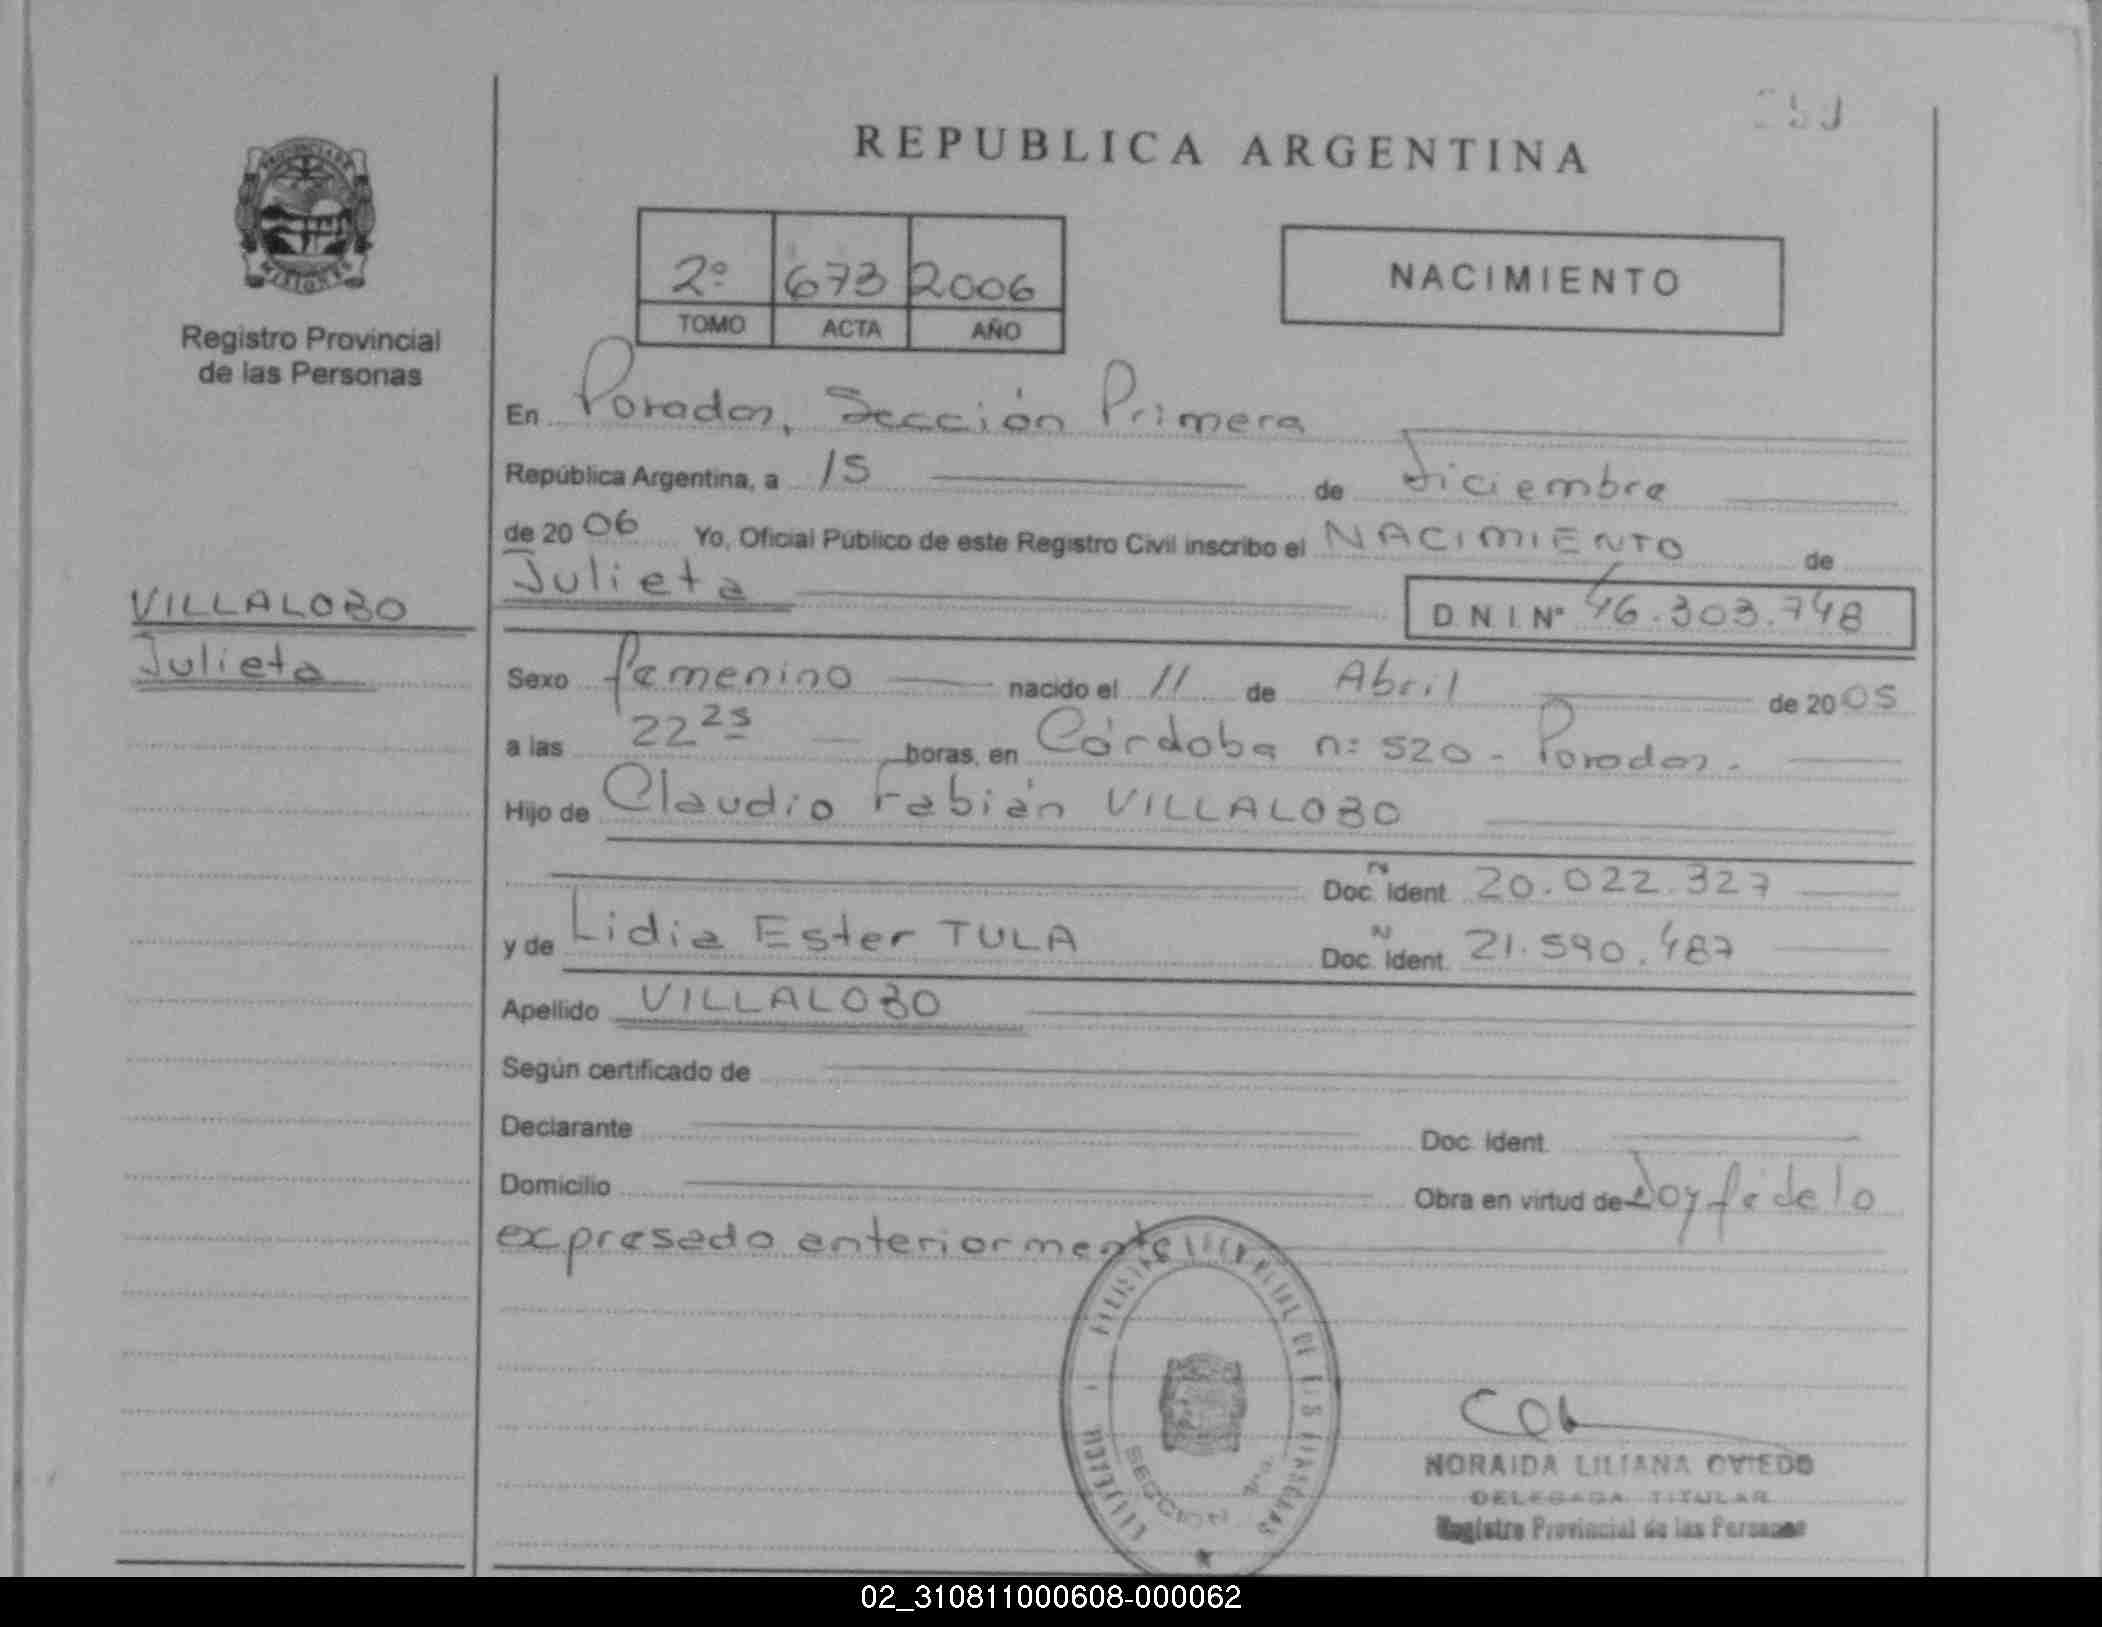 REPUBLICA ARGENTINA
PROVINCIA DE
MISIONES
Registro Provincial
de las Personas
2º 673 2006
TOMO ACTA AÑO
NACIMIENTO
En Posadas, Sección Primera
República Argentina, a 15 de Diciembre
de 20 06 Yo, Oficial Público de este Registro Civil inscribo el NACIMIENTO de
Julieta D.N.I. Nº 46.303.748
VILLALOBO
Julieta
Sexo femenino nacido el 11 de Abril de 20 05
a las 22 25 horas, en Córdoba nº 520 - Posadas.
Hijo de Claudio Fabián VILLALOBO
Doc. Ident. N 20.022.327
y de Lidia Ester TULA Doc. Ident. N 21.590.487
Apellido VILLALOBO
Según certificado de
Declarante Doc. Ident.
Domicilio Obra en virtud de Doy fe de lo
expresado anteriormente
SECCION 1ra.
NORAIDA LILIANA OVIEDO
DELEGADA TITULAR
Registro Provincial de las Personas
02_310811000608-000062